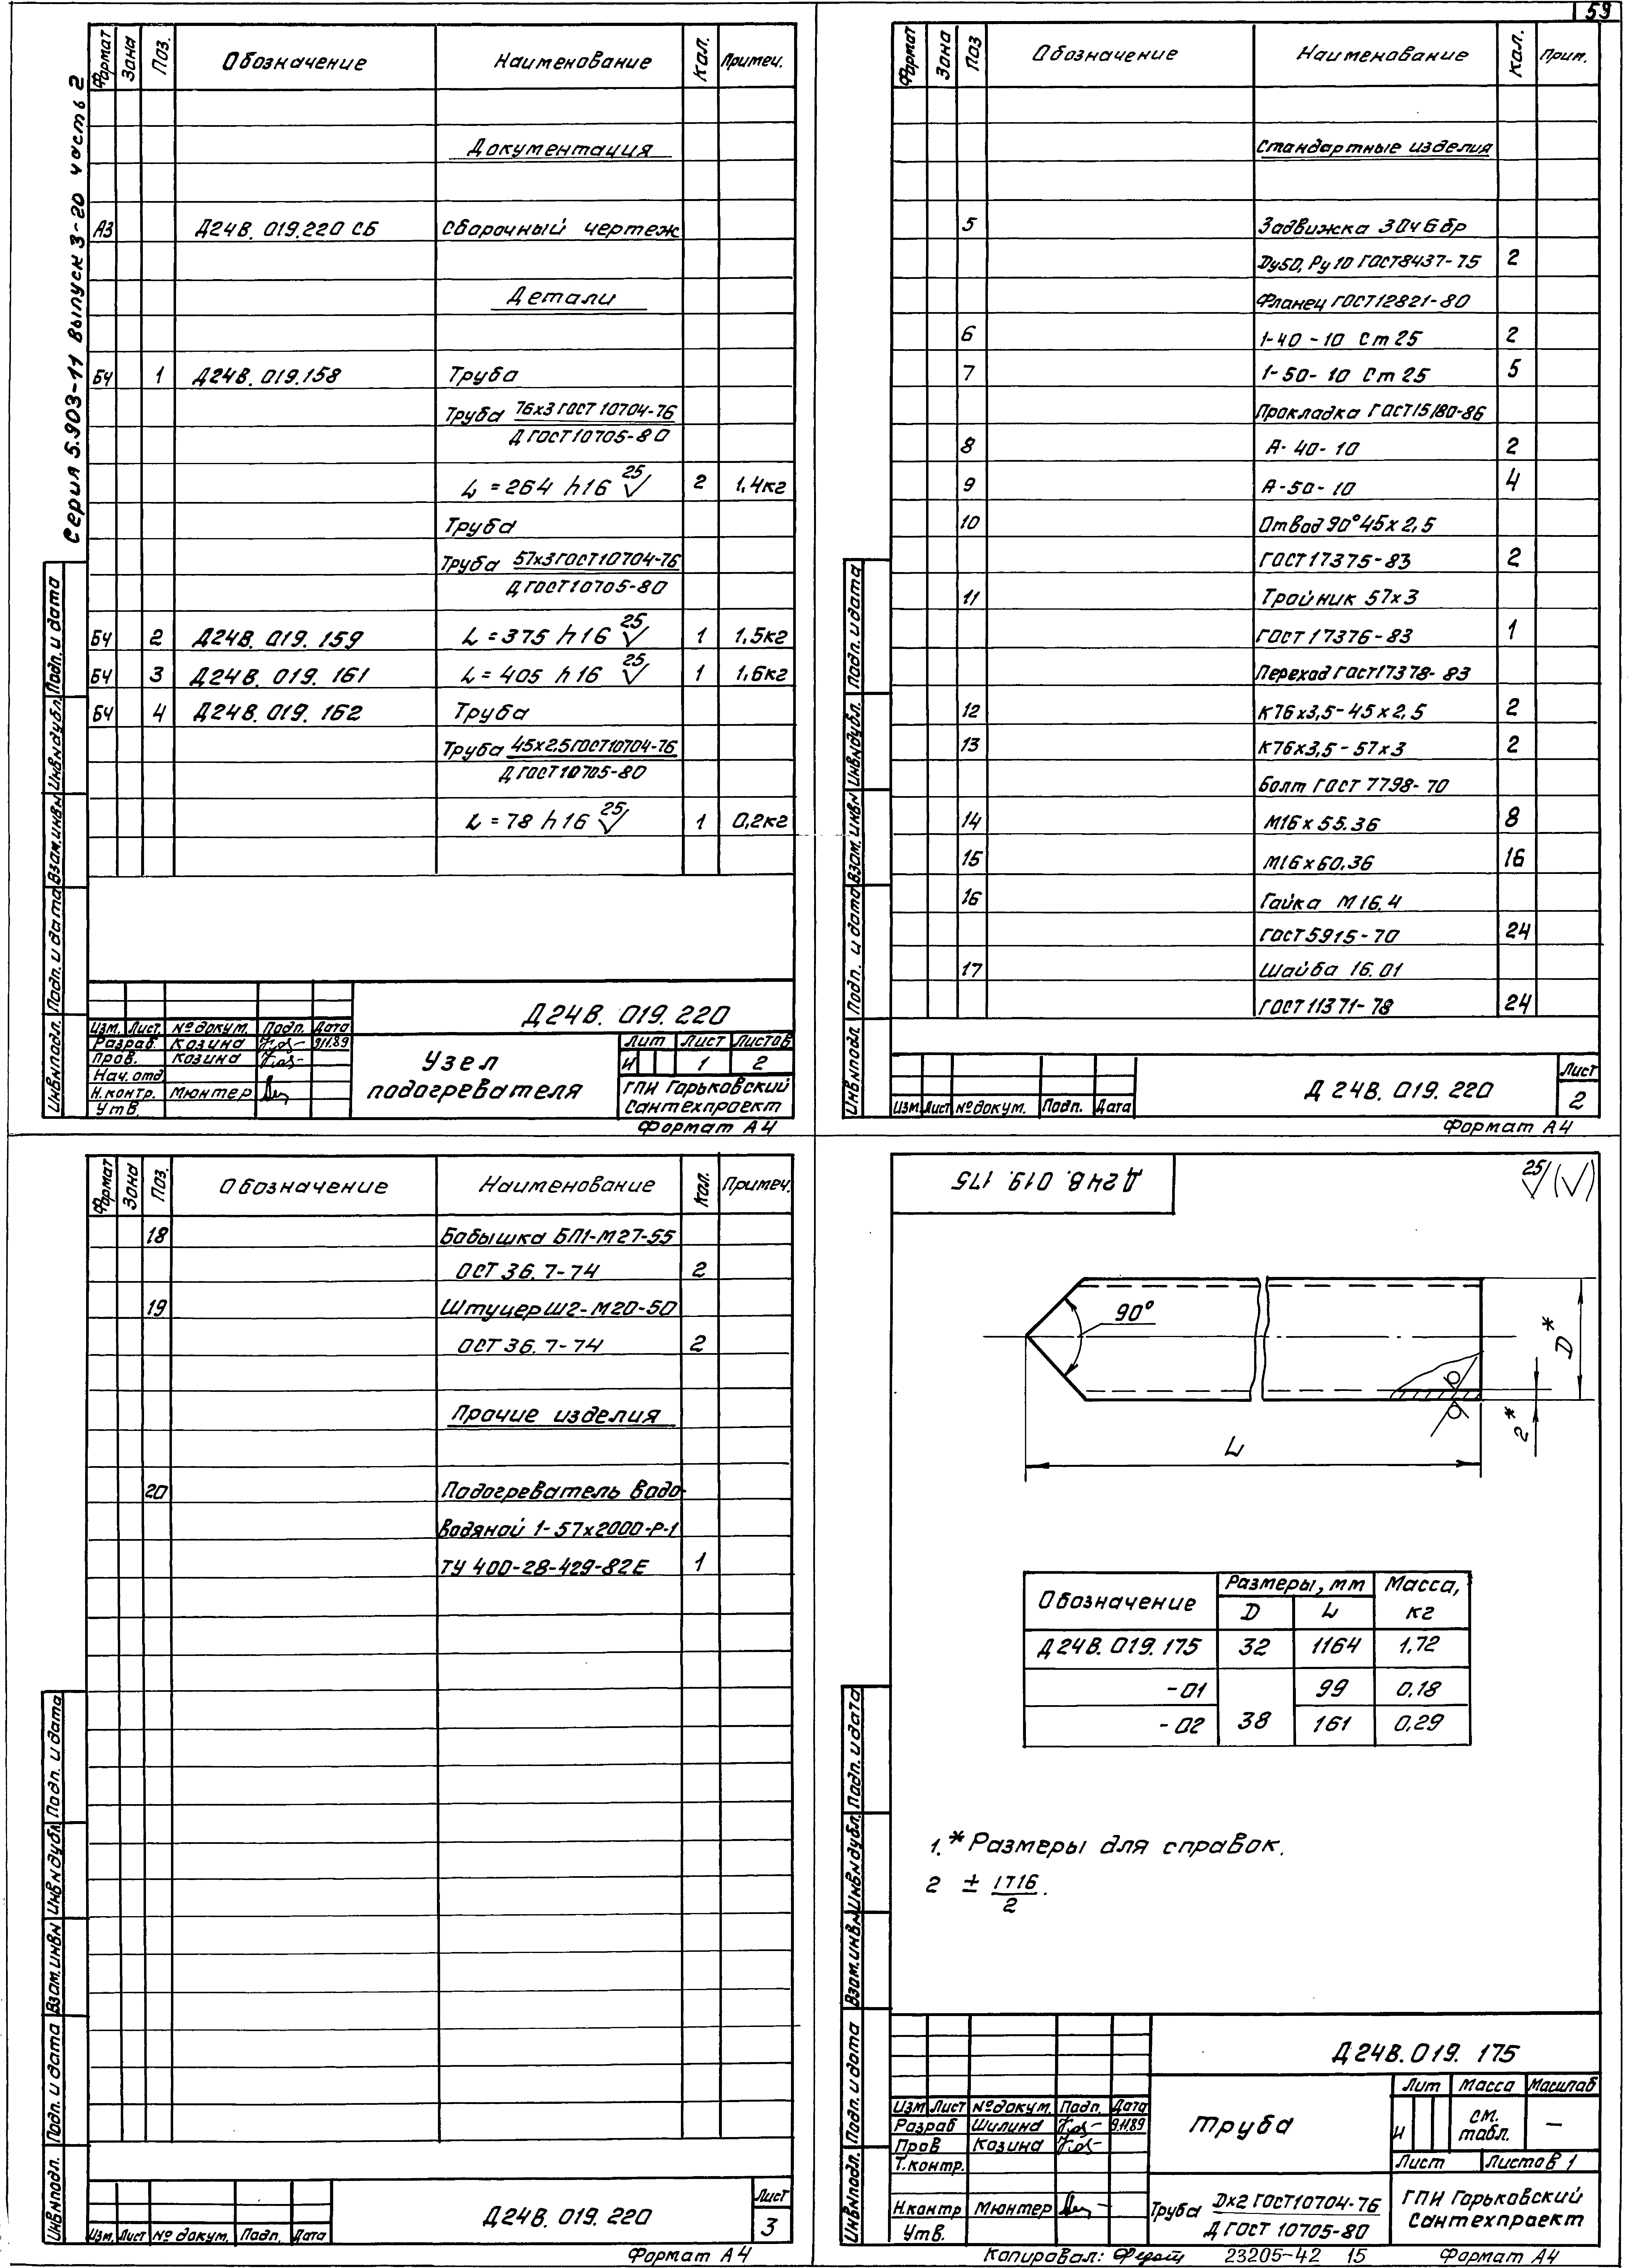 59
Серия 5.903-11 Выпуск 3-20 часть 2
Формат Зона Поз. Обозначение Наименование Кол. Примеч.
Документация
А3 Д24В.019.220 СБ Сборочный чертеж
Детали
БЧ 1 Д24В.019.158 Труба
Труба 76х3 ГОСТ 10704-76
Д ГОСТ 10705-80
L = 264 h16 25 2 1,4кг
Труба
Труба 57х3 ГОСТ 10704-76
Д ГОСТ 10705-80
БЧ 2 Д24В.019.159 L = 375 h16 25 1 1,5кг
БЧ 3 Д24В.019.161 L = 405 h16 25 1 1,6кг
БЧ 4 Д24В.019.162 Труба
Труба 45х2,5 ГОСТ 10704-76
Д ГОСТ 10705-80
L = 78 h16 25 1 0,2кг
Инв.№подл. Подп. и дата Взам.инв.№ Инв.№дубл. Подп. и дата
Д24В.019.220
Изм. Лист №докум. Подп. Дата
Разраб. Козина 9.11.89
Пров. Козина
Нач.отд
Н.контр. Мюнтер
Утв.
Узел
подогревателя
Лит Лист Листов
И 1 2
ГПИ Горьковский
Сантехпроект
Формат А4
Формат Зона Поз Обозначение Наименование Кол. Прим.
Стандартные изделия
5 Задвижка 30ч6бр
Dу50, Ру10 ГОСТ8437-75 2
Фланец ГОСТ12821-80
6 1-40-10 Ст25 2
7 1-50-10 Ст25 5
Прокладка ГОСТ15180-86
8 А-40-10 2
9 А-50-10 4
10 Отвод 90°45х2,5
ГОСТ17375-83 2
11 Тройник 57х3
ГОСТ17376-83 1
Переход ГОСТ17378-83
12 К76х3,5-45х2,5 2
13 К76х3,5-57х3 2
Болт ГОСТ 7798-70
14 М16х55.36 8
15 М16х60.36 16
16 Гайка М16.4
ГОСТ5915-70 24
17 Шайба 16.01
ГОСТ11371-78 24
Инв.№подл. Подп. и дата Взам.инв.№ Инв.№дубл. Подп. и дата
Изм. Лист №докум. Подп. Дата
Д24В.019.220
Лист
2
Формат А4
Формат Зона Поз. Обозначение Наименование Кол. Примеч.
18 Бобышка БП1-М27-55
ОСТ 36.7-74 2
19 Штуцер Ш2-М20-50
ОСТ 36.7-74 2
Прочие изделия
20 Подогреватель водо-
водяной 1-57х2000-Р-1
ТУ 400-28-429-82Е 1
Инв.№подл. Подп. и дата Взам.инв.№ Инв.№дубл. Подп. и дата
Изм. Лист № докум. Подп. Дата
Д24В.019.220
Лист
3
Формат А4
Д24В.019.175
25
90°
D*
2*
L
Обозначение Размеры, мм Масса, кг
D L
Д24В.019.175 32 1164 1,72
-01 99 0,18
-02 38 161 0,29
1.* Размеры для справок.
2 ± IT16
2.
Инв.№подл. Подп. и дата Взам.инв.№ Инв.№дубл. Подп. и дата
Д24В.019.175
Изм Лист №докум. Подп. Дата
Разраб Шилина 9.11.89
Пров Козина
Т.контр.
Н.контр Мюнтер
Утв.
Труба
Лит Масса Масштаб
И см. табл. —
Лист Листов 1
Труба Dх2 ГОСТ10704-76
Д ГОСТ 10705-80
ГПИ Горьковский
Сантехпроект
Копировал: 23205-42 15 Формат А4